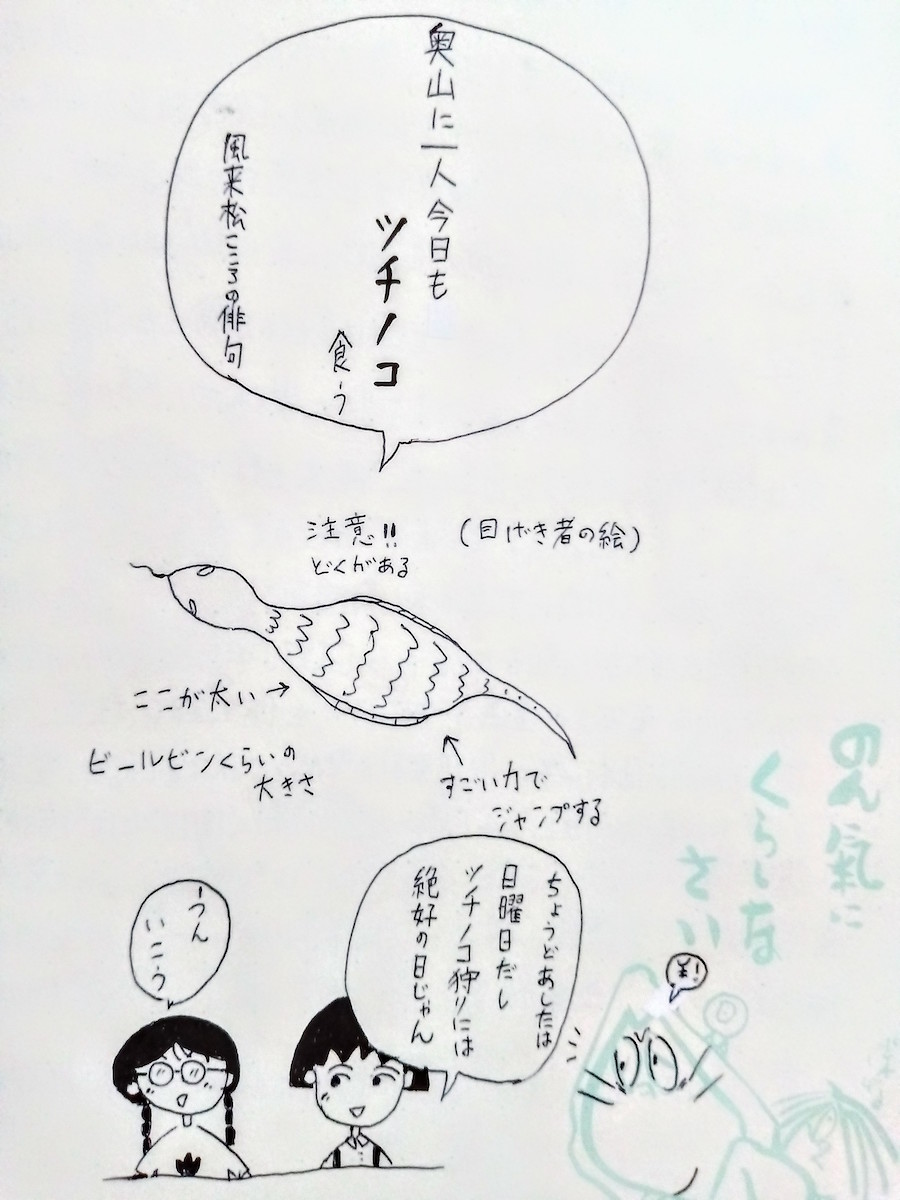 奥山に一人今日も
ツチノコ
食う
風来松こころの俳句
注意!!
どくがある
(目げき者の絵)
ここが太い→
ビールビンくらいの
大きさ
すごい力で
ジャンプする
ちょうどあしたは
日曜日だし
ツチノコ狩りには
絶好の日じゃん
うん
いこう
のん氣に
くらしな
さい
¥!